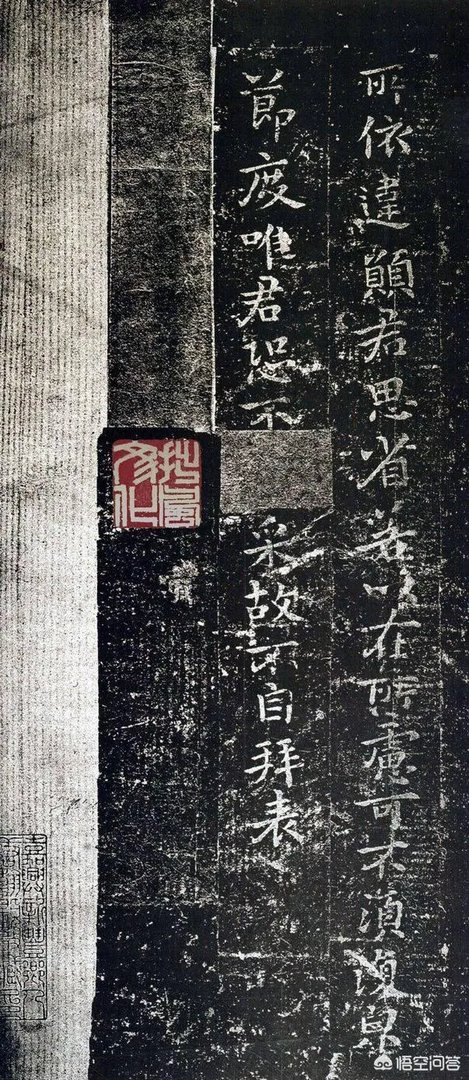 所依違願君思省若以在所慮可不須復皃
節度唯君恐不采故不自拜表
悟空问答